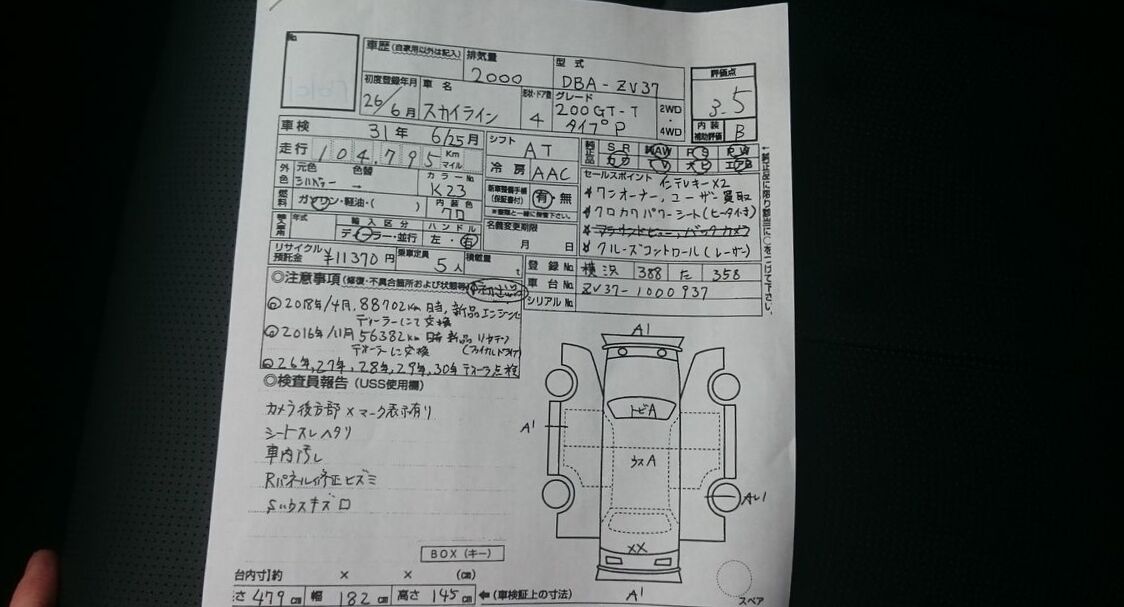 No.
車歴 (自家用以外は記入)
排気量
2000
型式
DBA-ZV37
評価点
3.5
内装補助評価
B
初度登録年月
26/6月
車名
スカイライン
形状・ドア数
4
グレード
200GT-T
タイプP
2WD・4WD
車検
31年 6/25月
シフト
AT
純正品
SR AW PS PW
カワ TV ナビ エアB
走行
104,795 Km マイル
冷房
AAC
セールスポイント
インテリキーX2
ワンオーナー、ユーザー買取
クロカワパワーシート(ヒータ付き)
クルーズコントロール(レーザー)
外色
元色
色替
シルバー →
カラーNo.
K23
新車整備手帳
(保証書付)
有・無
※書類と一緒に御覧下さい。
燃料
ガソリン・軽油・( )
内装色
クロ
輸入車用
年式
輸入区分
ディーラー・並行
ハンドル
左・右
名義変更期限
月 日
リサイクル預託金
¥11370円
乗車定員
5人
積載量
t
登録No.
横浜 388 た 358
車台No.
ZV37-1000937
シリアルNo.
←純正品に限り該当に○をつけて下さい。
◎注意事項 (修復・不具合箇所および状態等)
2018年/4月、88702km時、新品エンジン
ディーラーにて交換
2016年/11月 56382km時 新品
ディーラーに交換 (ファイナルドライブ)
26年、27年、28年、29年、30年ディーラー点検
◎検査員報告 (USS使用欄)
カメラ後方部×マーク表示有り
シートスレヘタリ
車内汚れ
Rパネル修正ヒズミ
A1
トビA
A1
ウスA
XX
A1
スペア
BOX (キー)
台内寸]約 × × (㎝)
さ 479㎝ 幅 182㎝ 高さ 145㎝ ←(車検証上の寸法)